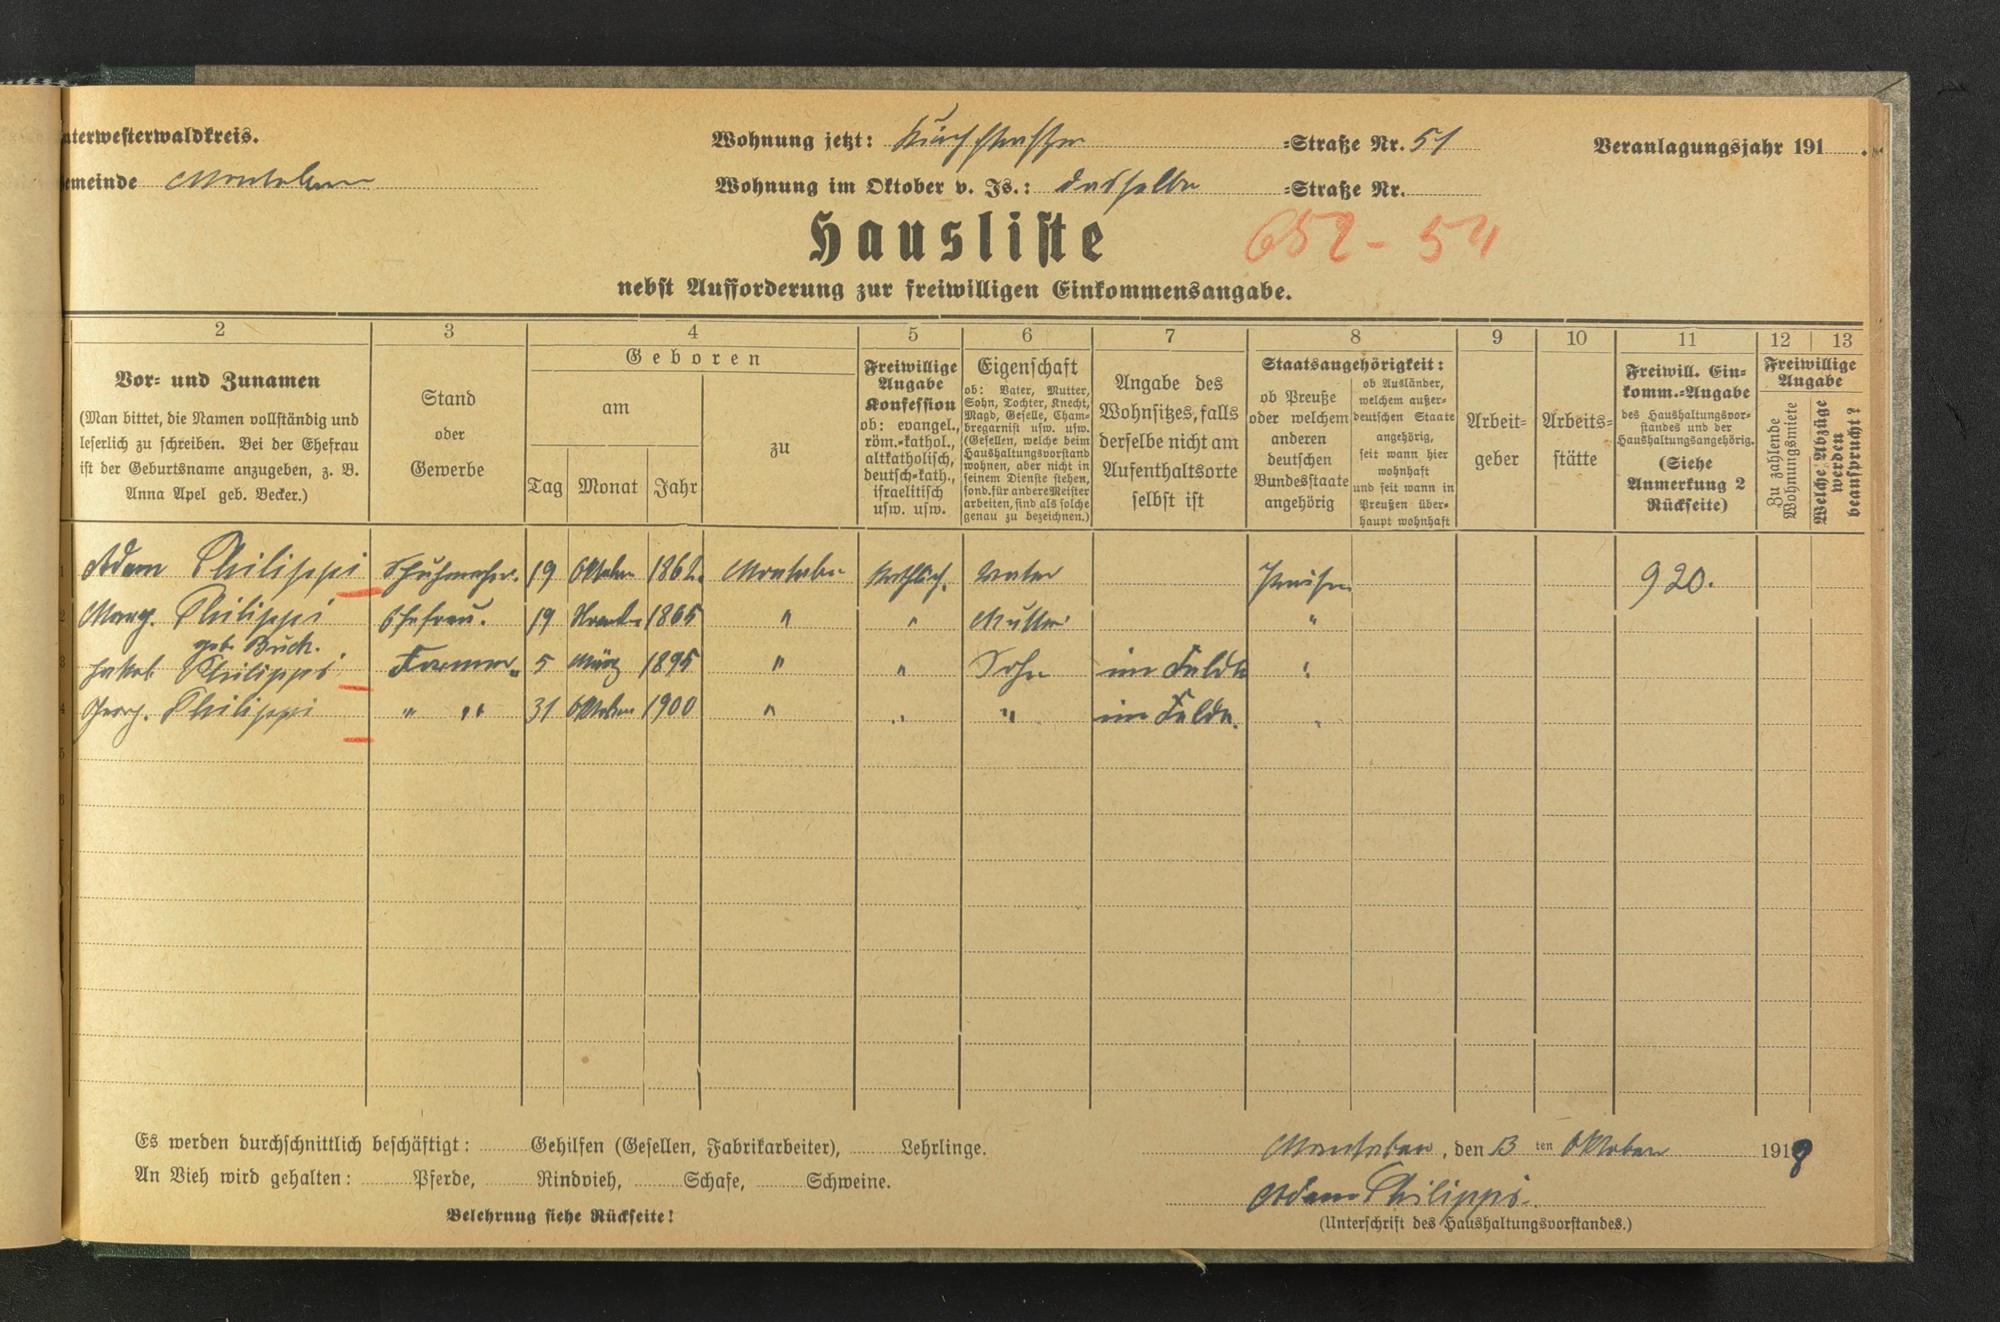 nterwesterwaldkreis.
Wohnung jetzt: Kirchstraßen =Straße Nr. 51
Veranlagungsjahr 191 .
emeinde Montabaur
Wohnung im Oktober v. Js.: dasselbe =Straße Nr.
Hausliste
652 - 54
nebst Aufforderung zur freiwilligen Einkommensangabe.
2 3 4 5 6 7 8 9 10 11 12 13
Vor= und Zunamen
(Man bittet, die Namen vollständig und
leserlich zu schreiben. Bei der Ehefrau
ist der Geburtsname anzugeben, z. B.
Anna Apel geb. Becker.)
Stand
oder
Gewerbe
Geboren
am
Tag Monat Jahr
zu
Freiwillige
Angabe
Konfession
ob: evangel.,
röm.=kathol.,
altkatholisch,
deutsch=kath.,
israelitisch
usw. usw.
Eigenschaft
ob: Vater, Mutter,
Sohn, Tochter, Knecht,
Magd, Geselle, Cham=
bregarnist usw. usw.
(Gesellen, welche beim
Haushaltungsvorstand
wohnen, aber nicht in
seinem Dienste stehen,
sond. für andere Meister
arbeiten, sind als solche
genau zu bezeichnen.)
Angabe des
Wohnsitzes, falls
derselbe nicht am
Aufenthaltsorte
selbst ist
Staatsangehörigkeit:
ob Preuße
oder welchem
anderen
deutschen
Bundesstaate
angehörig
ob Ausländer,
welchem außer=
deutschen Staate
angehörig,
seit wann hier
wohnhaft
und seit wann in
Preußen über=
haupt wohnhaft
Arbeit=
geber
Arbeits=
stätte
Freiwill. Ein=
komm.=Angabe
des Haushaltungsvor=
standes und der
Haushaltungsangehörig.
(Siehe
Anmerkung 2
Rückseite)
Freiwillige
Angabe
Zu zahlende
Wohnungsmiete
Welche Abzüge
werden
beansprucht?
1 Adam Philippi Schuhmacher. 19 Oktober 1862. Montabaur Kathlisch. Vater Preußen 920.
2 Marg. Philippi Ehefrau. 19 1865 " " Mutter "
geb. Buch.
3 Jakob Philippi Former. 5 März 1895 " " Sohn im Felde "
4 Georg. Philippi " " 31 Oktober 1900 " " " im Felde. "
5
6
7
Es werden durchschnittlich beschäftigt: Gehilfen (Gesellen, Fabrikarbeiter), Lehrlinge.
Montabaur, den 13 ten Oktober 1918
An Vieh wird gehalten: Pferde, Rindvieh, Schafe, Schweine.
Adam Philippi.
Belehrung siehe Rückseite!
(Unterschrift des Haushaltungsvorstandes.)